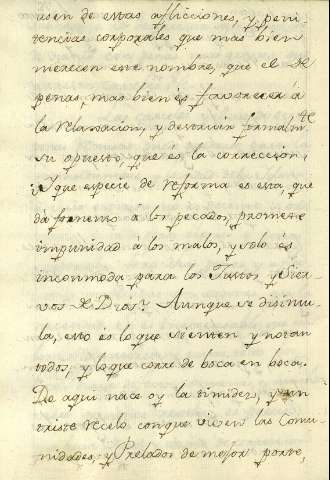 usen de estas aflicciones, y peni
tencias corporales que mas bien
merecen este nombre, que el de
penas, mas bien és favorecer a
la relaxacion, y destruir formalm.te
su opuesto, que és, la correccion,
Y que especie de reforma es esta, que
dá fomento à los pecados, promete
impunidad à los malos, y solo és
incommoda para los Justos y Sier-
vos de Dios? Aunque se disimu-
la, esto és lo que sienten y notan
todos, y lo que corre de boca en boca.
De aqui nace oy la timidez, y un
triste recelo con que viven las Comu-
nidades, y Prelados de mejor porte,